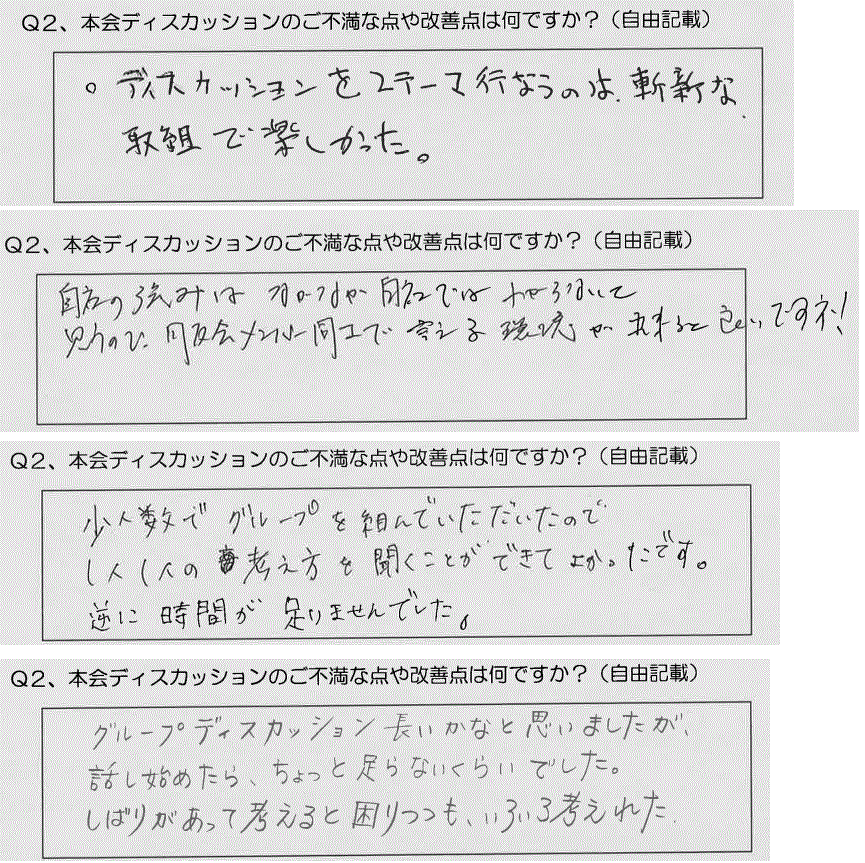 Q2、本会ディスカッションのご不満な点や改善点は何ですか？（自由記載）
。ディスカッションを2テーマ行なうのは、斬新な
取組で楽しかった。
Q2、本会ディスカッションのご不満な点や改善点は何ですか？（自由記載）
自社の強みは なかなか自社では
思うので、同友会メンバー同士で言える環境が出来ると良いですネ！
Q2、本会ディスカッションのご不満な点や改善点は何ですか？（自由記載）
少人数でグループを組んでいただいたので
1人1人の考え方を聞くことができてよかったです。
逆に時間が足りませんでした。
Q2、本会ディスカッションのご不満な点や改善点は何ですか？（自由記載）
グループディスカッション長いかなと思いましたが、
話し始めたら、ちょっと足らないくらいでした。
しばりがあって考えると困りつつも、いろいろ考えれた.